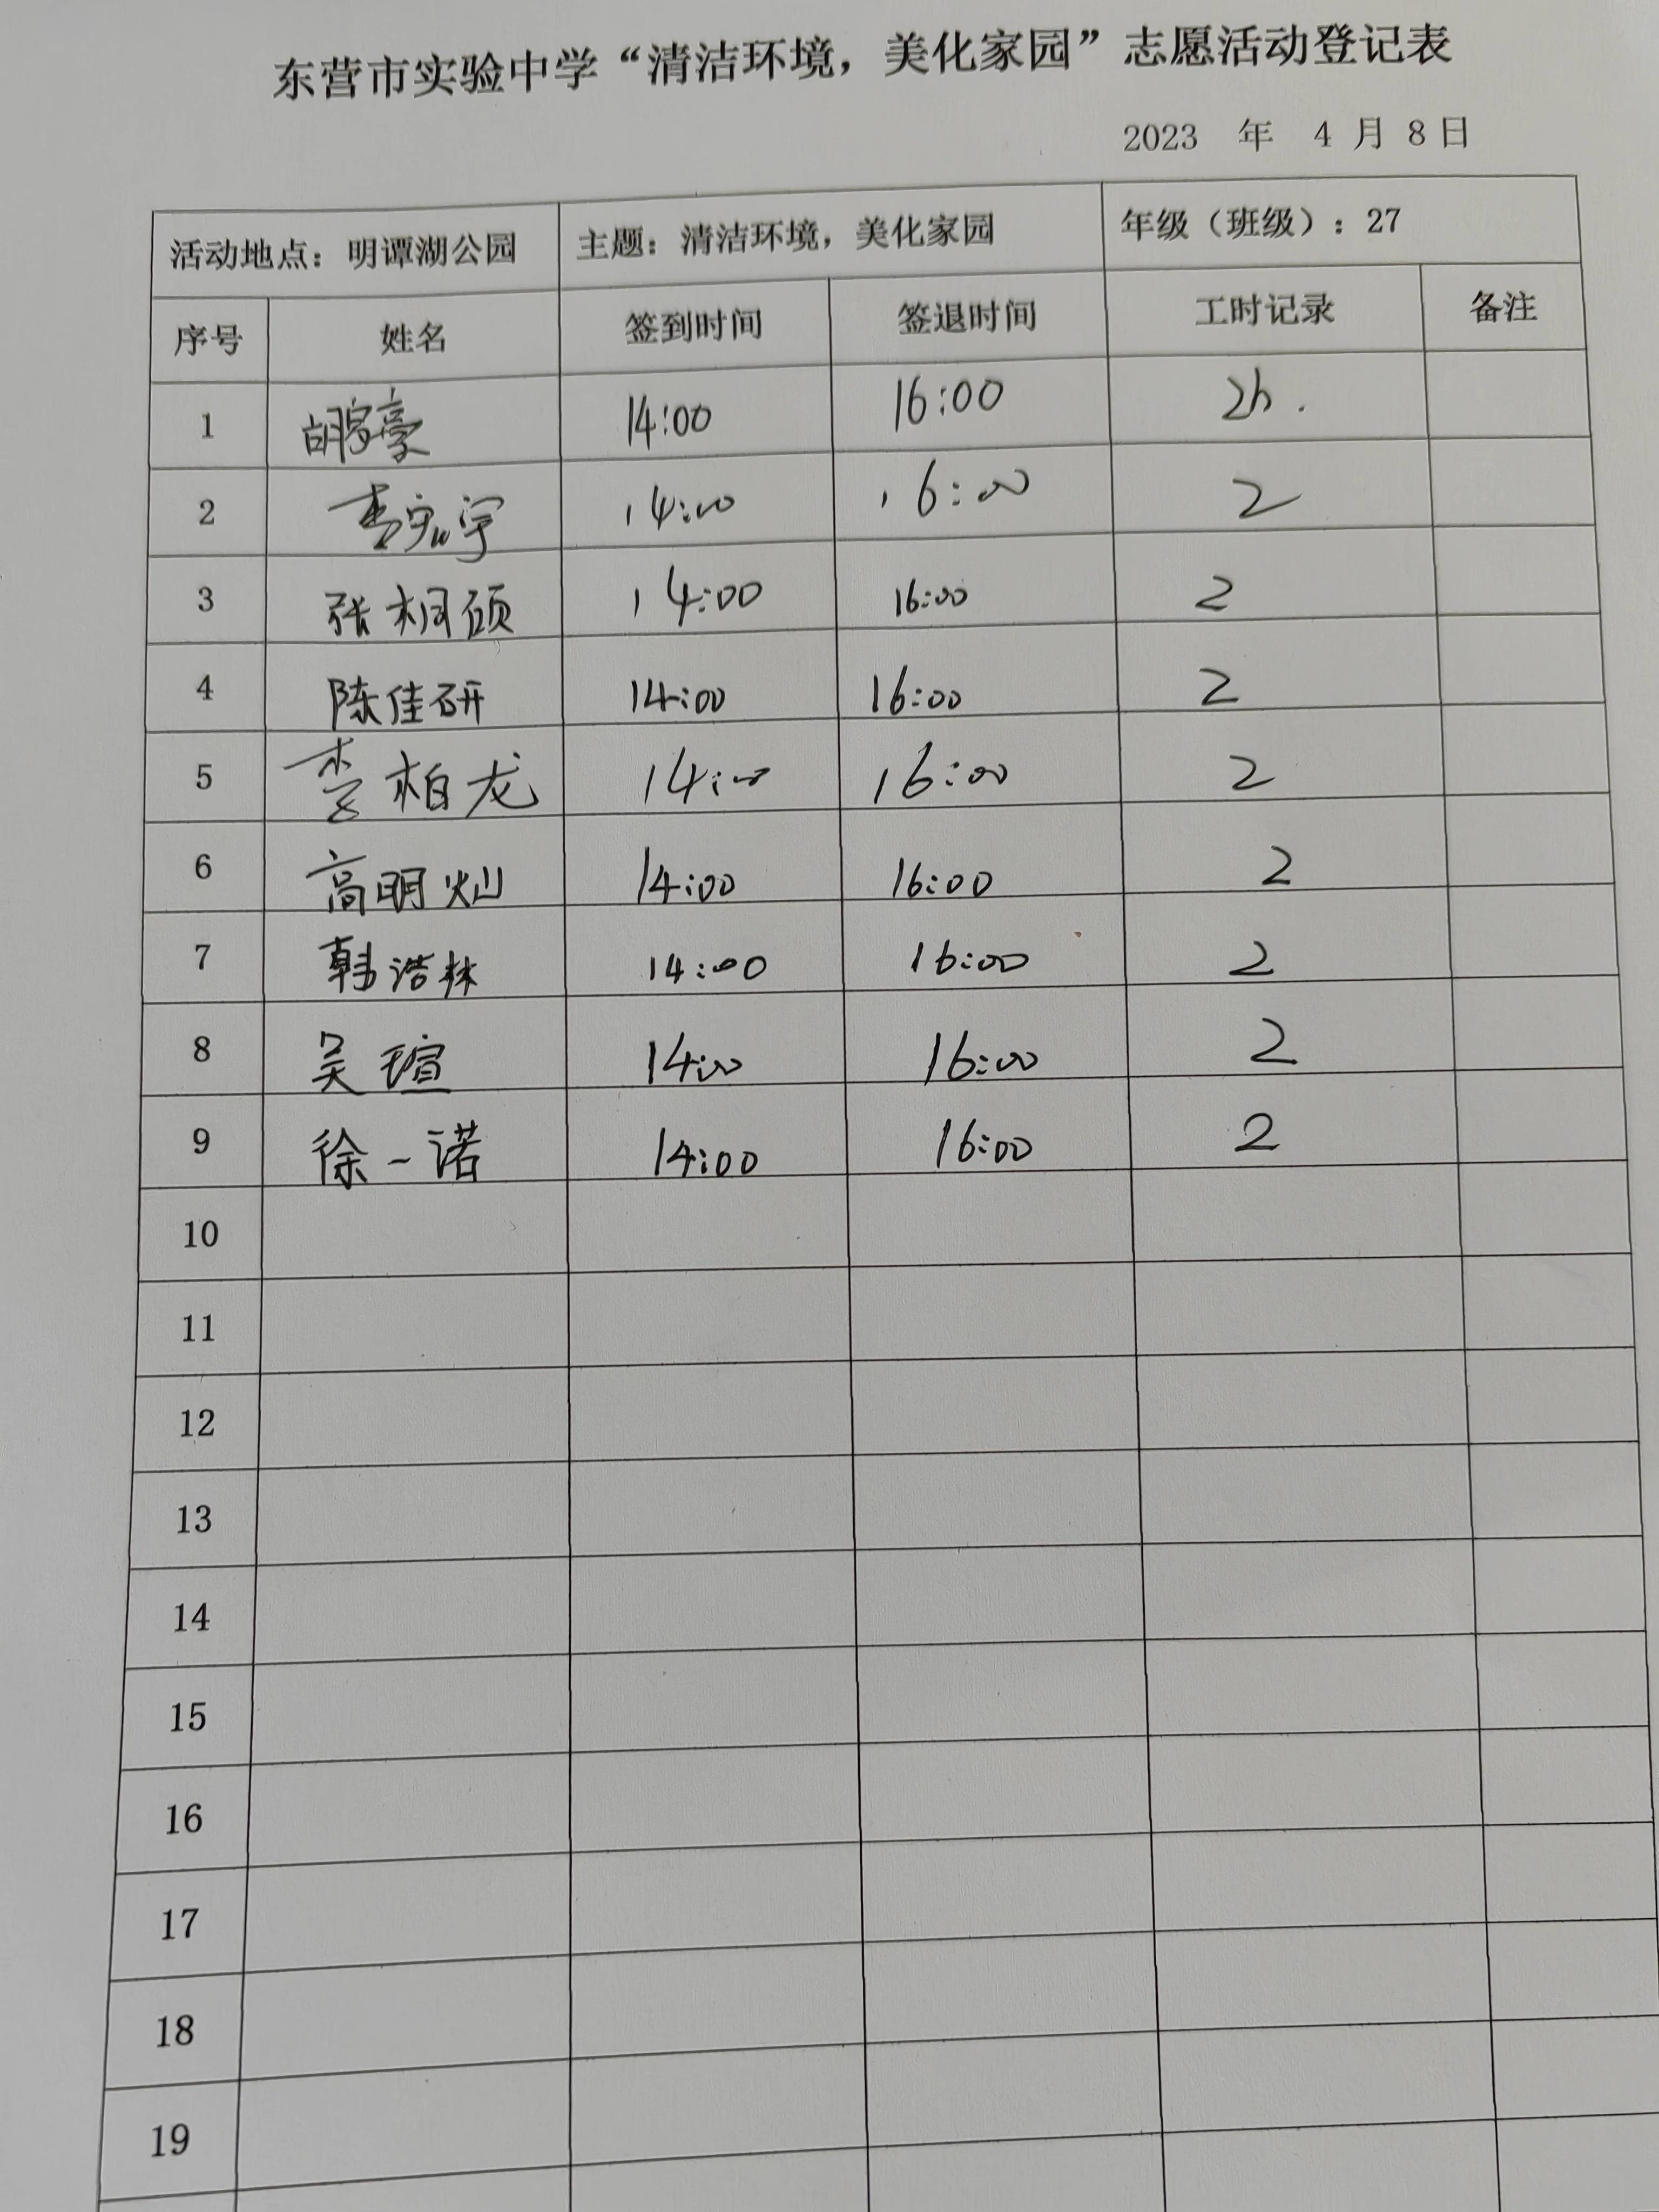 东营市实验中学“清洁环境，美化家园”志愿活动登记表
2023 年 4 月 8日
活动地点：明谭湖公园 主题：清洁环境，美化家园 年级（班级）：27
序号 姓名 签到时间 签退时间 工时记录 备注
1 14:00 16:00 2h.
2 宇 14:00 16:00 2
3 张桐硕 14:00 16:00 2
4 陈佳研 14:00 16:00 2
5 李柏龙 14:00 16:00 2
6 高明灿 14:00 16:00 2
7 韩浩林 14:00 16:00 2
8 吴瑄 14:00 16:00 2
9 徐一诺 14:00 16:00 2
10
11
12
13
14
15
16
17
18
19